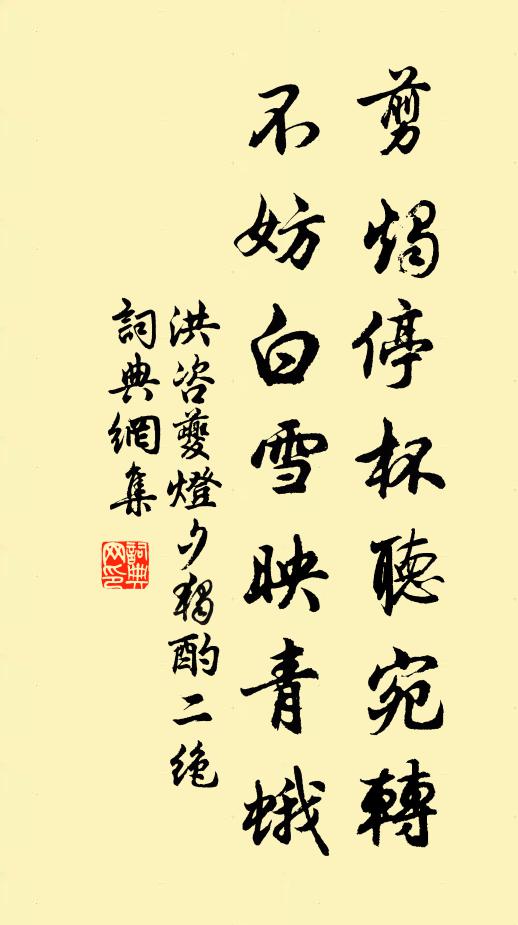 剪燭停杯聽宛轉
不妨白雪映青蛾
洪咨夔燈夕獨酌二绝
詞典網集
詞典网印